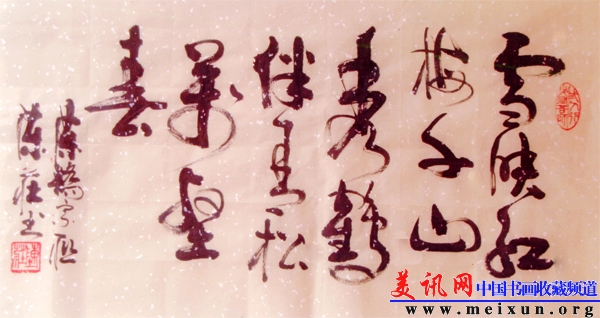 雪映红
梅千山
秀鹤
伴青松
萬壑
春
美讯网 中国书画收藏频道
www.meixun.org